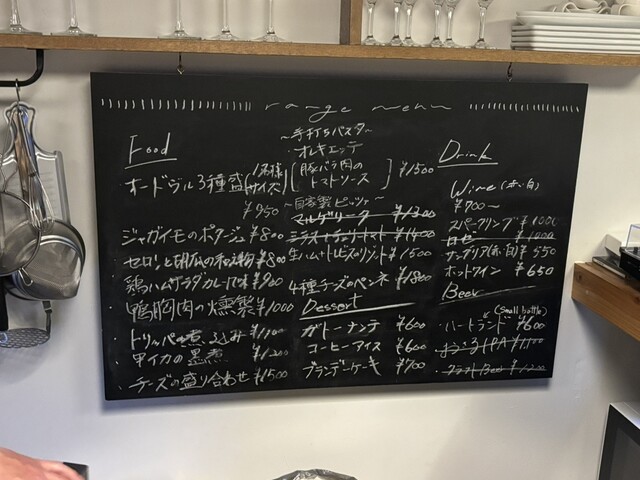 range menu
Food
オードヴル3種盛(1名様サイズ)
¥950
ジャガイモのポタージュ ¥800
セロリと胡瓜の和え物 ¥800
鶏ハムサラダカレー ¥900
鴨胸肉の燻製 ¥1000
・トリッパの煮込み ¥1100
・甲イカの墨煮 ¥1200
・チーズの盛り合わせ ¥1500
〜手打ちパスタ〜
・オレキエッテ
[豚バラ肉のトマトソース] ¥1500
〜自家製ピッツァ〜
マルゲリータ ¥1300
¥1400
生ハム・トレビスのリゾット ¥1500
4種チーズのペンネ ¥1800
Dessert
ガトーナンテ ¥600
コーヒーアイス ¥600
ブランデーケーキ ¥700
Drink
Wine(赤・白)
¥700〜
スパークリング ¥1000
ロゼ ¥1000
サングリア(赤・白) ¥550
ホットワイン ¥650
Beer
(Small bottle)
・ハートランド ¥600
IPA ¥1100
・クラフトBeer ¥1200